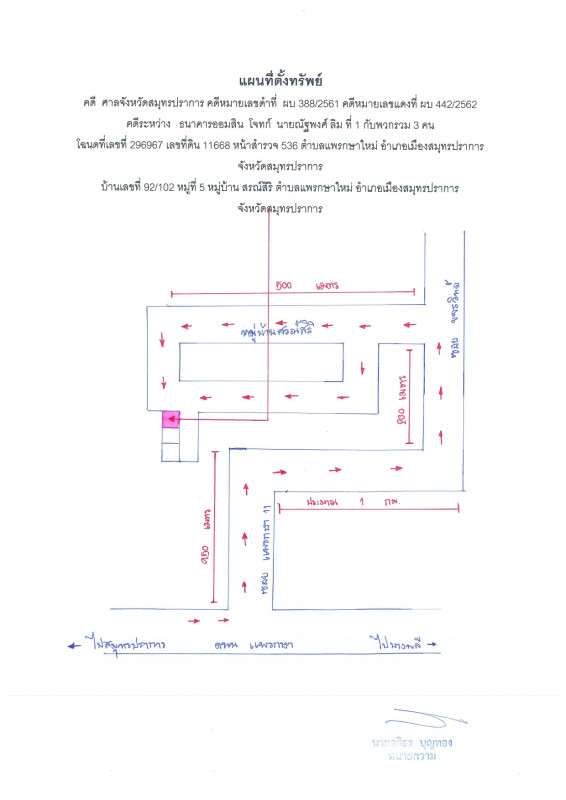 แผนที่ตั้งทรัพย์
คดี ศาลจังหวัดสมุทรปราการ คดีหมายเลขดำที่ ผบ 388/2561 คดีหมายเลขแดงที่ ผบ 442/2562
คดีระหว่าง ธนาคารออมสิน โจทก์ นายณัฐพงศ์ ลิม ที่ 1 กับพวกรวม 3 คน
โฉนดที่เลขที่ 296967 เลขที่ดิน 11668 หน้าสำรวจ 536 ตำบลแพรกษาใหม่ อำเภอเมืองสมุทรปราการ
จังหวัดสมุทรปราการ
บ้านเลขที่ 92/102 หมู่ที่ 5 หมู่บ้าน สรณ์สิริ ตำบลแพรกษาใหม่ อำเภอเมืองสมุทรปราการ
จังหวัดสมุทรปราการ
500 เมตร
หมู่บ้านสรณ์สิริ
ซอย
200 เมตร
ประมาณ 1 กม.
650 เมตร
ซอย แพรกษา 11
ไปสมุทรปราการ ถนน แพรกษา ไปบางพลี
บุญทอง
ทนายความ